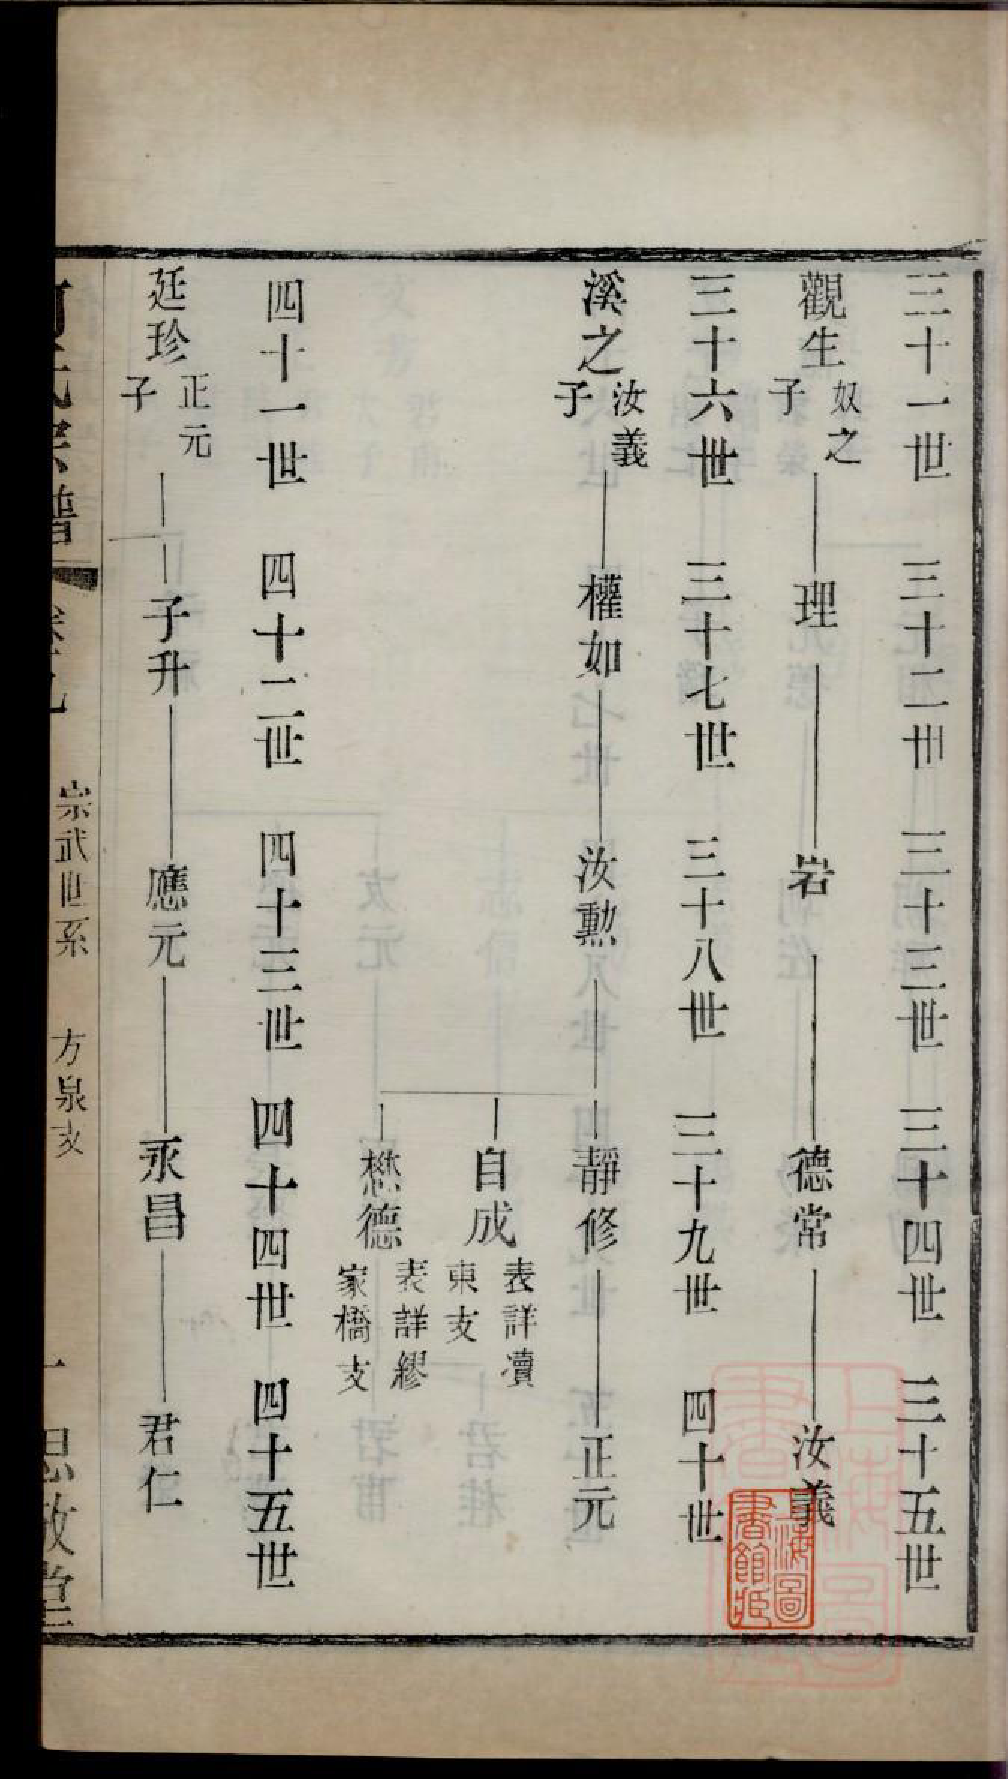 三十一世 三十二世 三十三世 三十四世 三十五世
觀生 奴之子 理 岩 德常 汝義
三十六世 三十七世 三十八世 三十九世 四十世
溪之 汝義子 權如 汝勳 靜修 正元
自成 表詳瀆東支
懋德 表詳繆家橋支
四十一世 四十二世 四十三世 四十四世 四十五世
廷珍 正元子 子升 應元 永昌 君仁
宗武世系 方泉支 一
上海圖書館藏